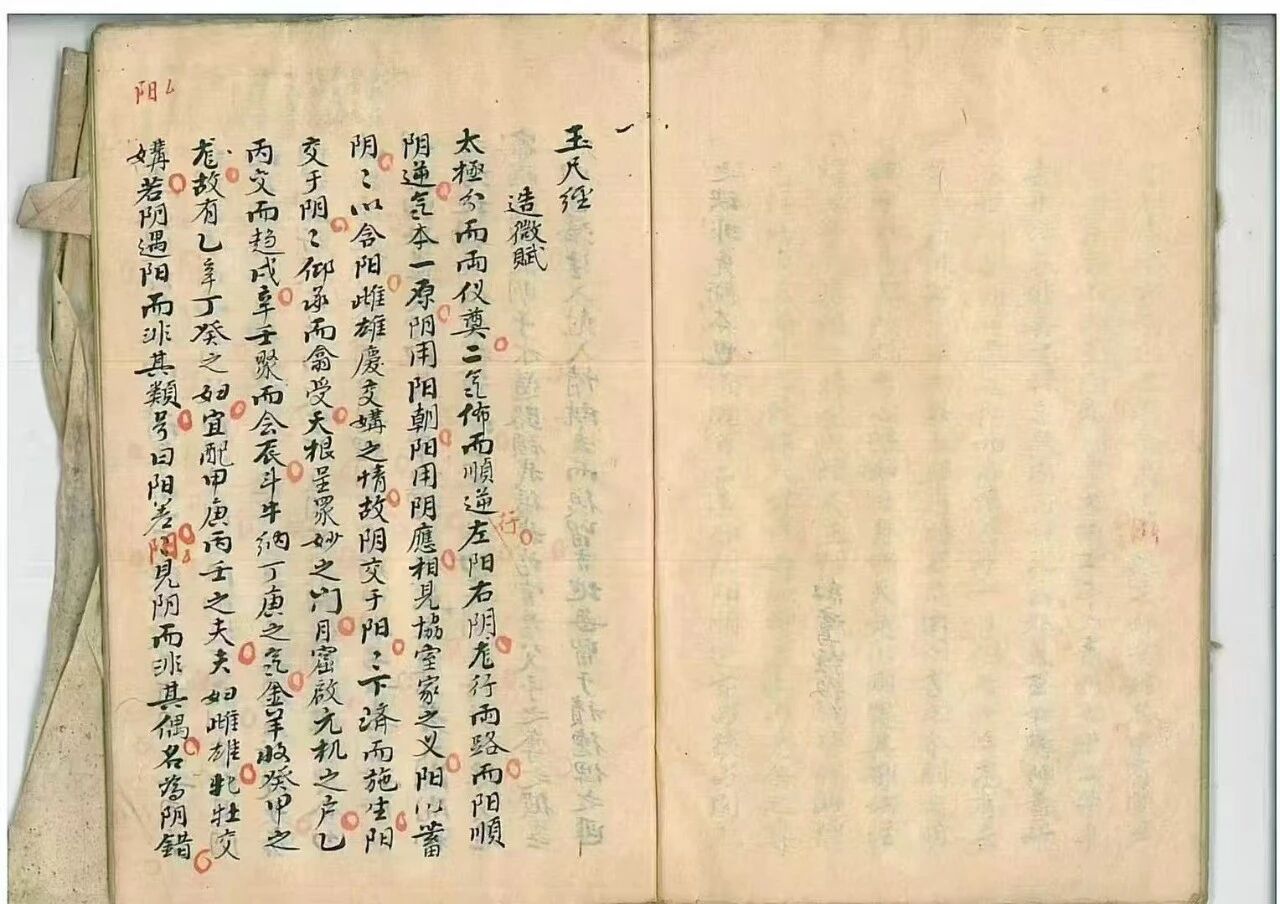 玉尺經
造微賦
太極分而両仪奠二气佈而順逆行左阳右阴龙行両路而阳順
阴逆气本一原阴用阳朝阳用阴應相見協室家之义阳以蓄
阴〻以含阳雌雄慶交媾之情故阴交于阳〻下済而施生阳
交于阴〻仰承而翕受天根呈眾妙之门月窟啟元机之户乙
丙交而趋戍辛壬聚而会辰斗牛纳丁庚之气金羊收癸甲之
龙故有乙辛丁癸之妇宜配甲庚丙壬之夫夫妇雌雄牝牡交
媾若阴遇阳而非其類号曰阳差阳見阴而非其偶名為阴错
阳